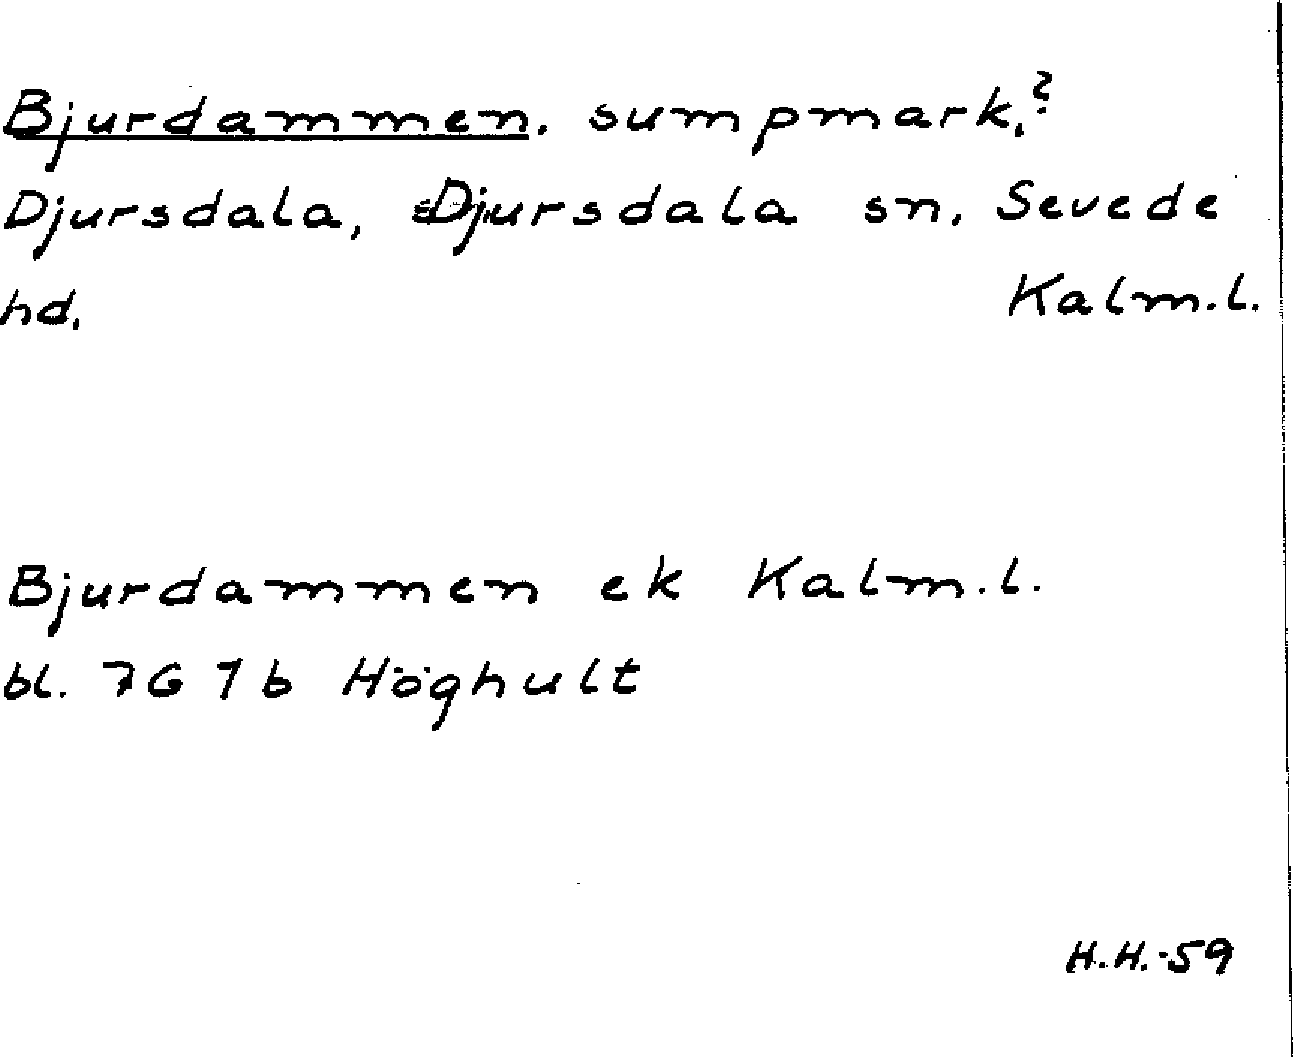 Bjurdammen, sumpmark,?
Djursdala, Djursdala sn, Sevede
hd, Kalm.l.
Bjurdammen ek Kalm.l.
bl. 7G 1b Höghult
H.H.-59